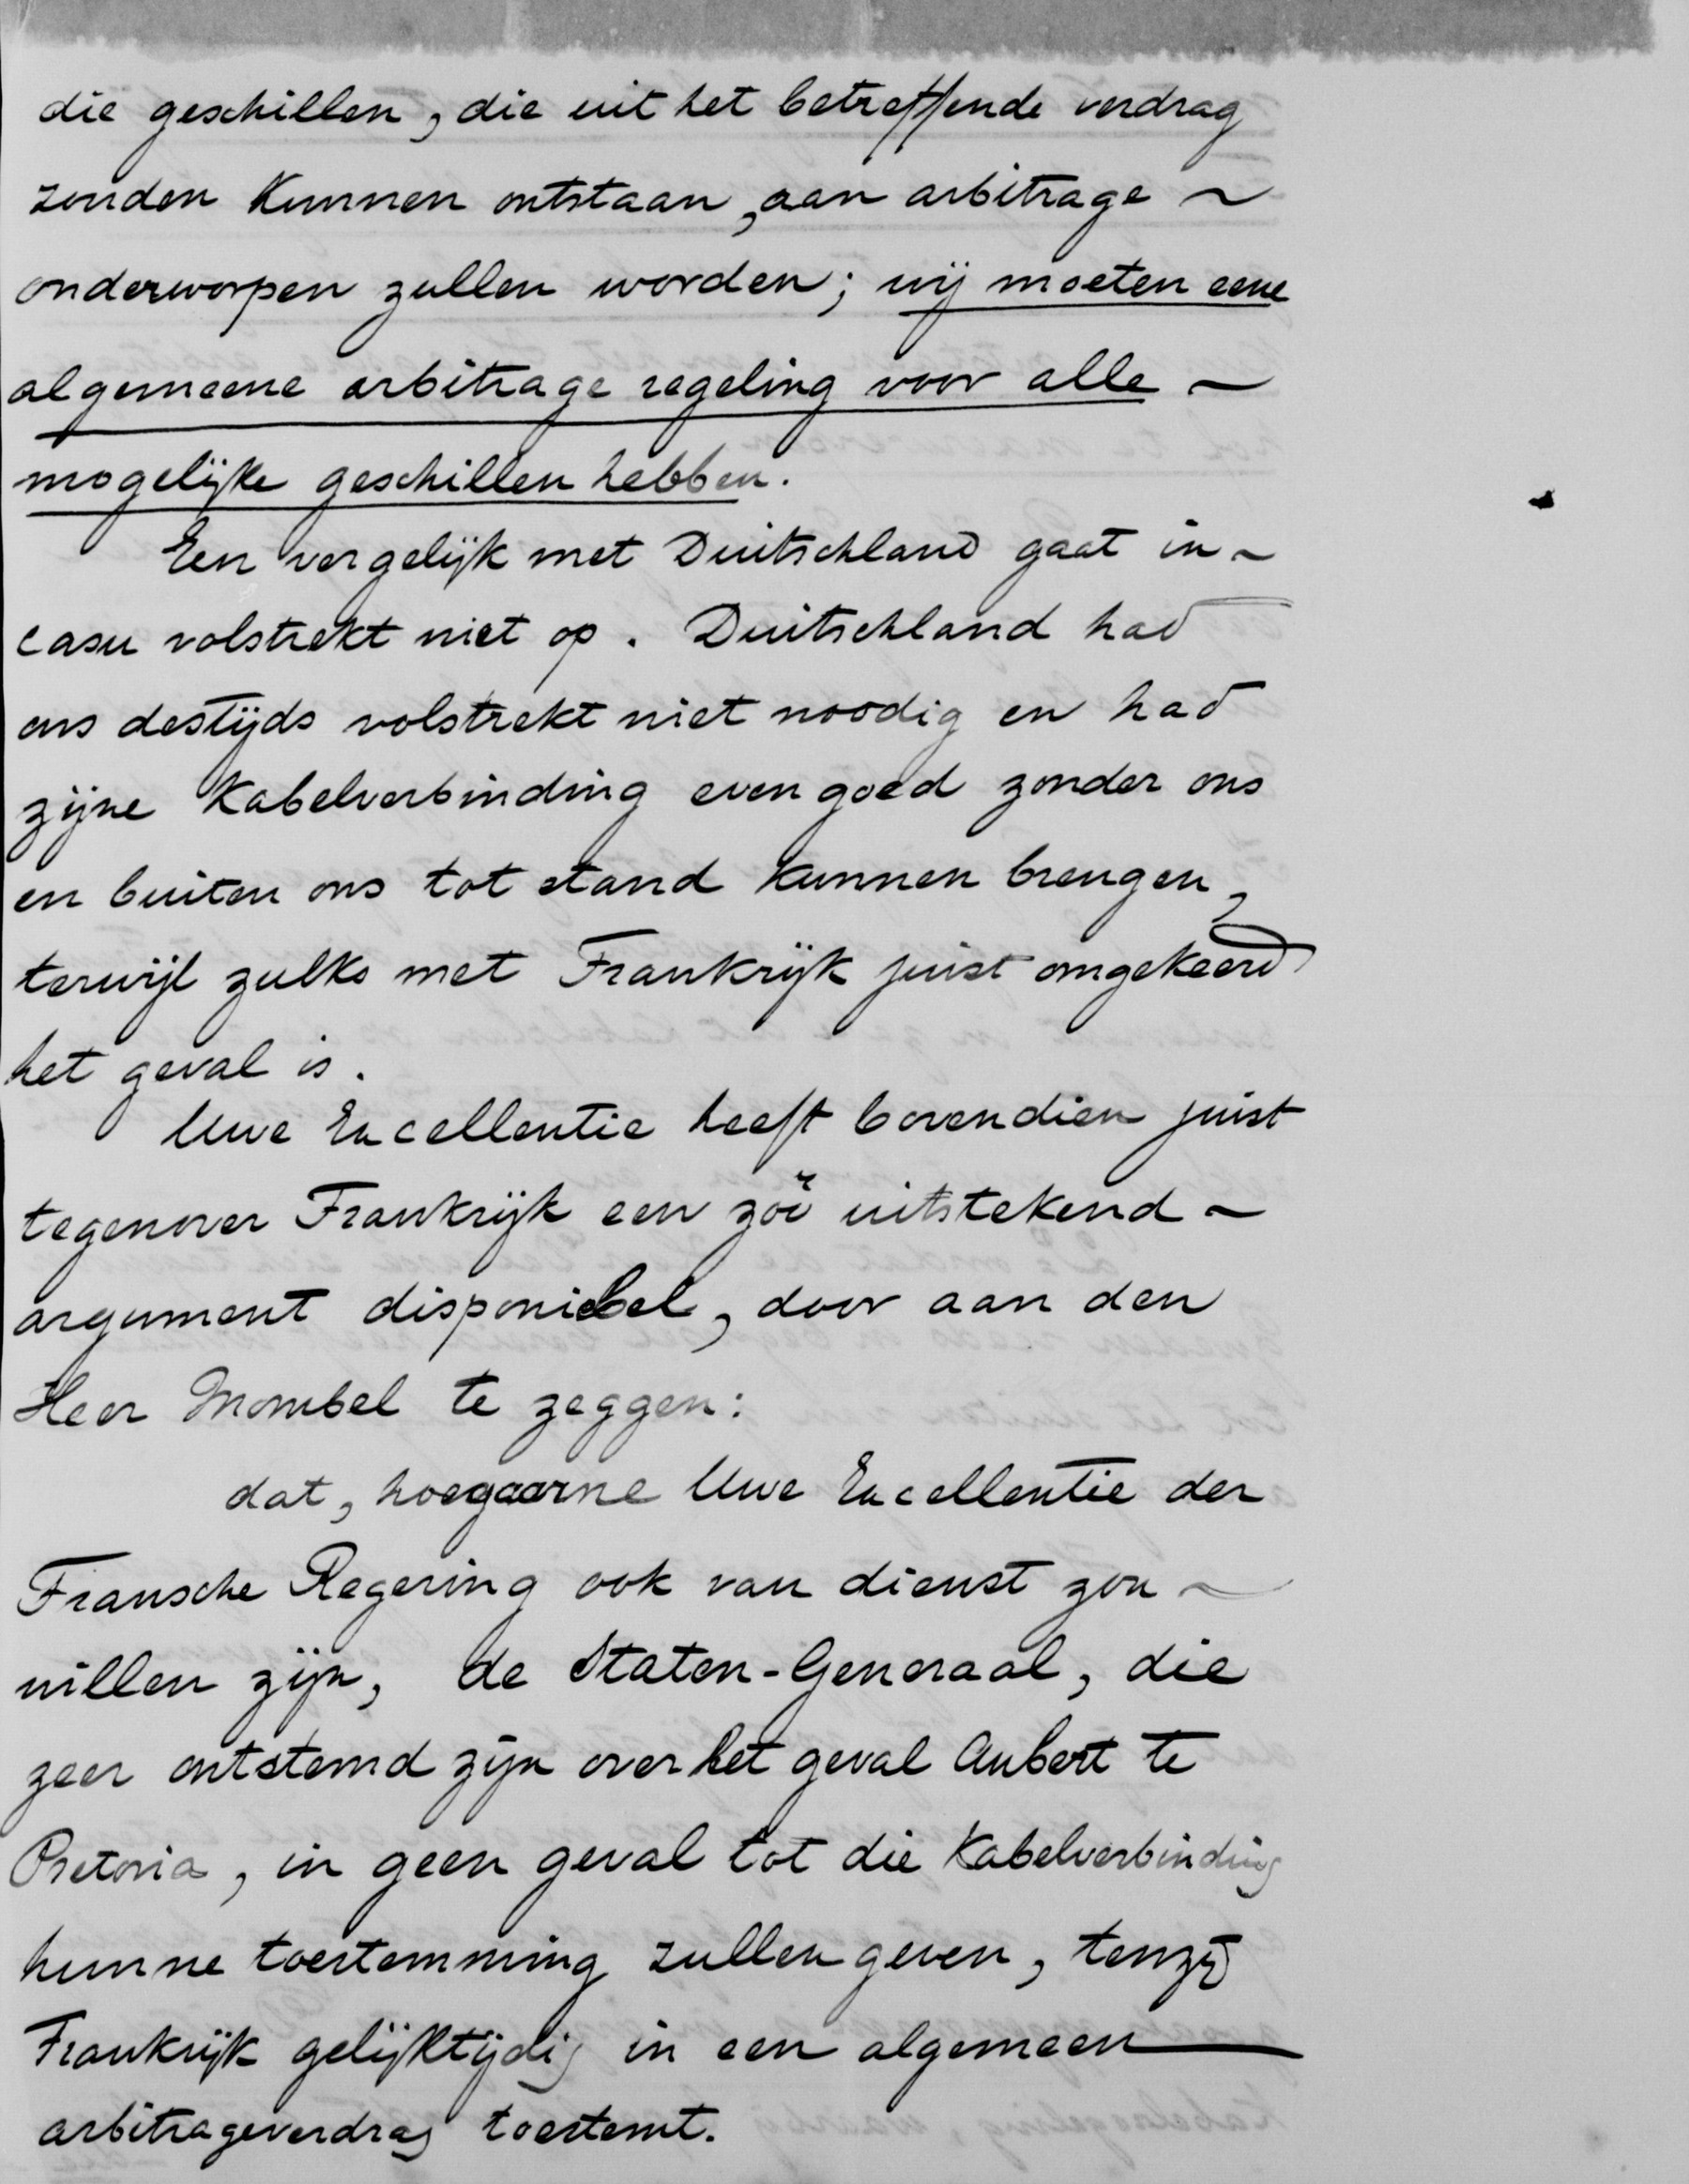 die geschillen, die uit het betreffende verdrag
zouden kunnen ontstaan, aan arbitrage ~
onderworpen zullen worden; wij moeten eene
algemeene arbitrage regeling voor alle ~
mogelijke geschillen hebben.
Een vergelijk met Duitschland gaat in ~
casu volstrekt niet op. Duitschland had
ons destijds volstrekt niet noodig en had
zijne Kabelverbinding even goed zonder ons
en buiten ons tot stand kunnen brengen,
terwijl zulks met Frankrijk juist omgekeerd
het geval is.
Uwe Excellentie heeft bovendien juist
tegenover Frankrijk een zóó uitstekend ~
argument disponiebel, door aan den
Heer Mombel te zeggen:
dat, hoegaarne Uwe Excellentie der
Fransche Regering ook van dienst zou ~
willen zijn, de Staten-Generaal, die
zeer ontstemd zijn over het geval Aubert te
Pretoria, in geen geval tot die Kabelverbinding
hunne toestemming zullen geven, tenzij
Frankrijk gelijktijdig in een algemeen
arbitrageverdrag toestemt.